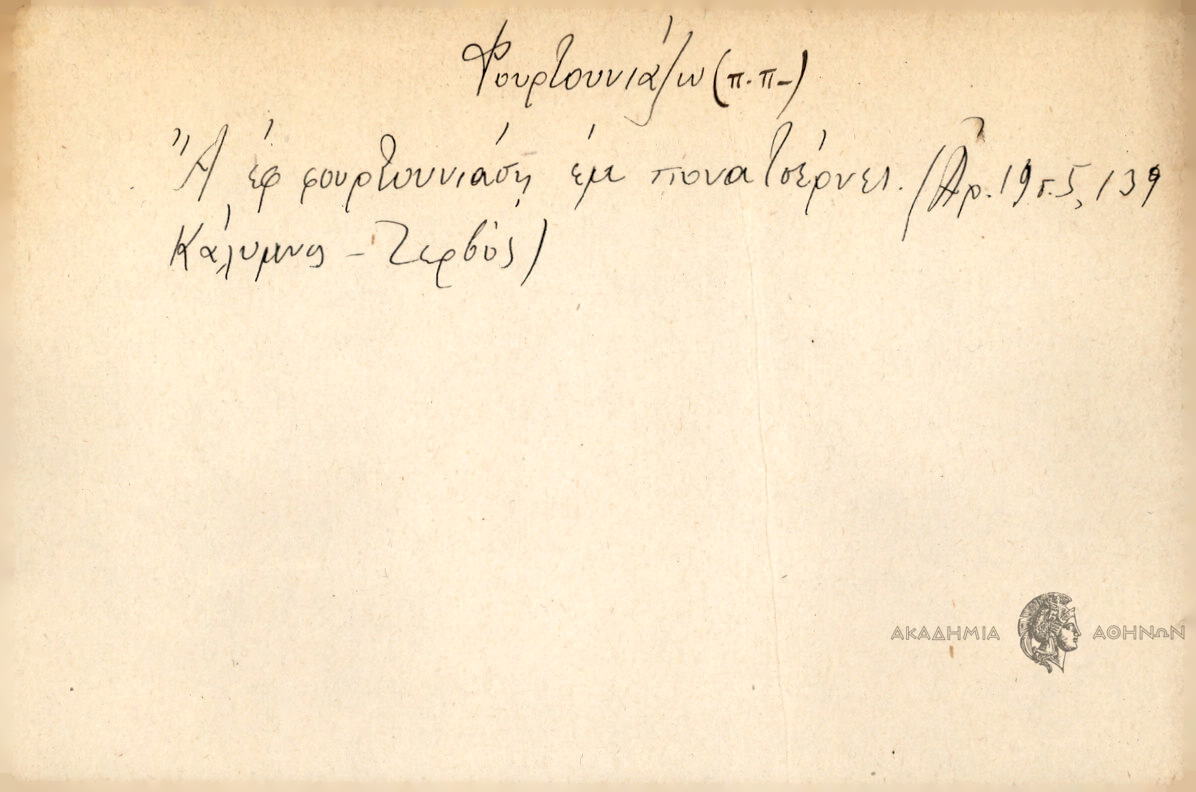 Φουρτουνιάζω (π.π-)
Ἄ ἐφ φουρτουνιάση ἐμ πονατσέρνει. (Ἀρ. 19 τ.5, 139
Κάλυμνος - Ζερβός)
ΑΚΑΔΗΜΙΑ ΑΘΗΝΩΝ